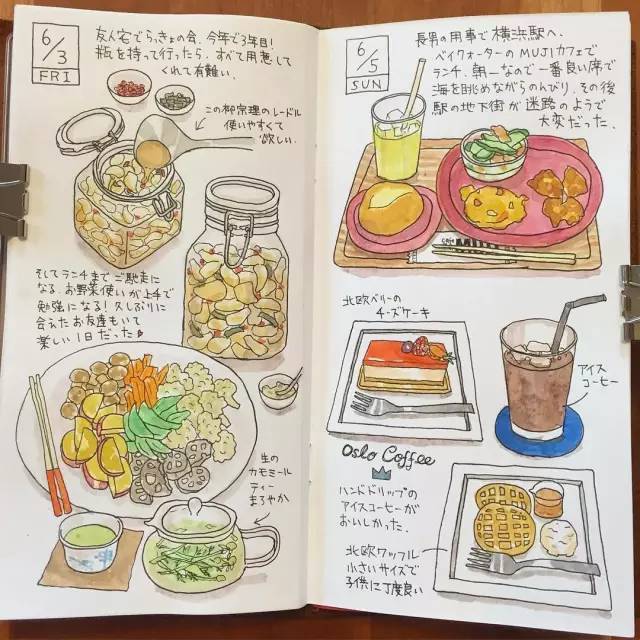 6/3
FRI
友人宅でらっきょの会、今年で3年目!
瓶を持って行ったら、すべて用意して
くれて有難い。
この柳宗理のレードル
使いやすくて
欲しい。
そしてランチまでご馳走に
なる。お野菜使いが上手で
勉強になる!久しぶりに
会えたお友達もいて
楽しい1日だった
生の
カモミール
ティー
まろやか
6/5
SUN
長男の用事で横浜駅へ。
ベイクォーターのMUJIカフェで
ランチ。朝一なので一番良い席で
海を眺めながらのんびり。その後
駅の地下街が迷路のようで
大変だった。
北欧ベリーの
チーズケーキ
アイス
コーヒー
Oslo Coffee
ハンドドリップの
アイスコーヒーが
おいしかった。
北欧ワッフル
小さいサイズで
子供に丁度良い